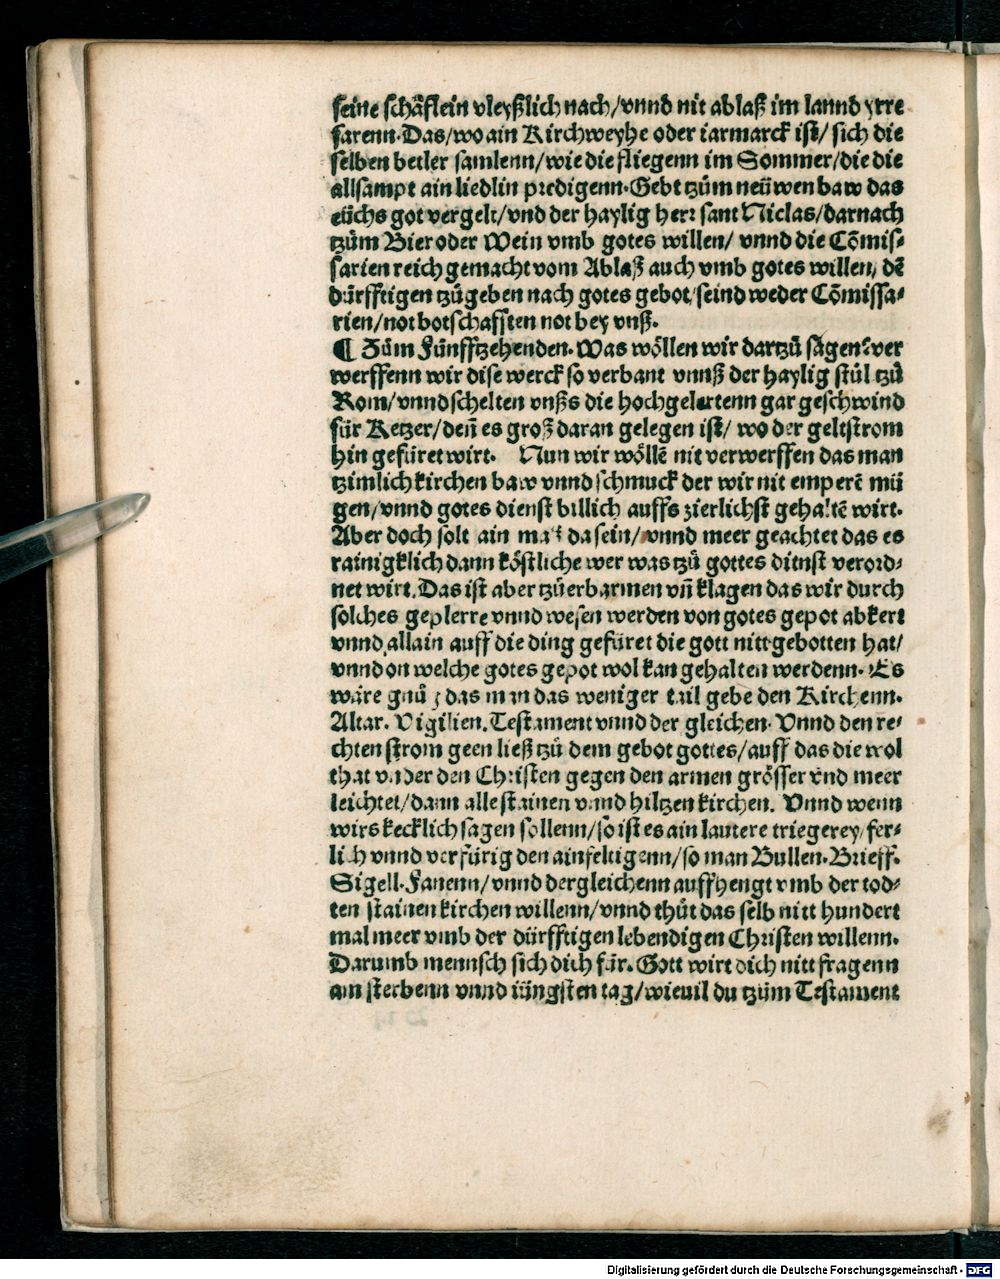 seine schäflein vleyßlich nach/vnnd nit ablaß im lannd yrre
farenn. Das/wo ain Kirchweyhe oder iarmarck ist/ sich die
selben betler samlenn/wie die fliegenn im Sommer/die die
allsampt ain liedlin predigenn. Gebt tzům neüwen baw das
eüchs got vergelt/vnd der haylig herr sant Niclas/darnach
tzům Bier oder Wein vmb gotes willen/ vnnd die Cōmis-
sarien reich gemacht vom Ablaß auch vmb gotes willen, dē
dürfftigen tzůgeben nach gotes gebot/seind weder Cōmissa-
rien/not botschafften not bey vnß.
¶ Zům Fünfftzehenden. Was wöllen wir dartzů sagen? ver
werffenn wir dise werck so verbant vnnß der haylig stůl tzů
Rom/vnnd schelten vnßs die hochgelertenn gar geschwind
für Ketzer/deñ es groß daran gelegen ist/ wo der geltstrom
hin gefüret wirt. Nun wir wöllē nit verwerffen das man
tzimlich kirchen baw vnnd schmuck der wir nit emperē mü
gen/vnnd gotes dienst billich auffs zierlichst gehaltē wirt.
Aber doch solt ain maß da sein/vnnd meer geachtet das es
rainigklich dann köstliche wer was tzů gottes dienst verord-
net wirt. Das ist aber tzů erbarmen vñ klagen das wir durch
solches geplerre vnnd wesen werden von gotes gepot abkert
vnnd allain auff die ding gefüret die gott nitt gebotten hat/
vnnd on welche gotes gepot wol kan gehalten werdenn. Es
wäre gnůg das man das weniger tail gebe den Kirchenn.
Altar. Vigilien. Testament vnnd der gleichen. Vnnd den re-
chten strom geen ließ tzů dem gebot gottes/auff das die wol
that vnder den Christen gegen den armen grösser vnd meer
leichtet/dann alle stainen vnnd hiltzen kirchen. Vnnd wenn
wirs kecklich sagen sollenn/so ist es ain lautere triegerey/fer-
lich vnnd verfürig den ainfeltigenn/so man Bullen. Brieff.
Sigell. Fanenn/vnnd dergleichenn auffhengt vmb der tod-
ten stainen kirchen willenn/vnnd thůt das selb nitt hundert
mal meer vmb der dürfftigen lebendigen Christen willenn.
Darumb mennsch sich dich für. Gott wirt dich nitt fragenn
am sterbenn vnnd iüngsten tag/wieuil du tzům Testament
Digitalisierung gefördert durch die Deutsche Forschungsgemeinschaft - DFG